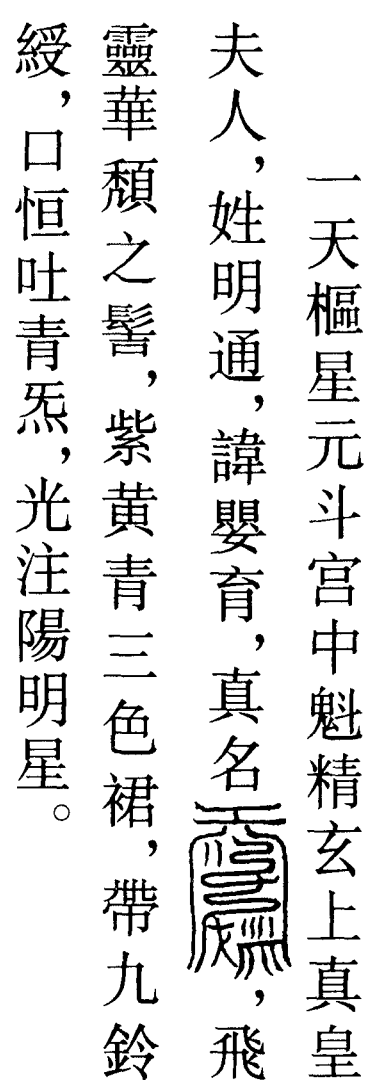 一天樞星元斗宮中魁精玄上真皇
夫人，姓明通，諱嬰育，真名，飛
靈華頹之髻，紫黄青三色裙，帶九鈴
綬，口恒吐青炁，光注陽明星。